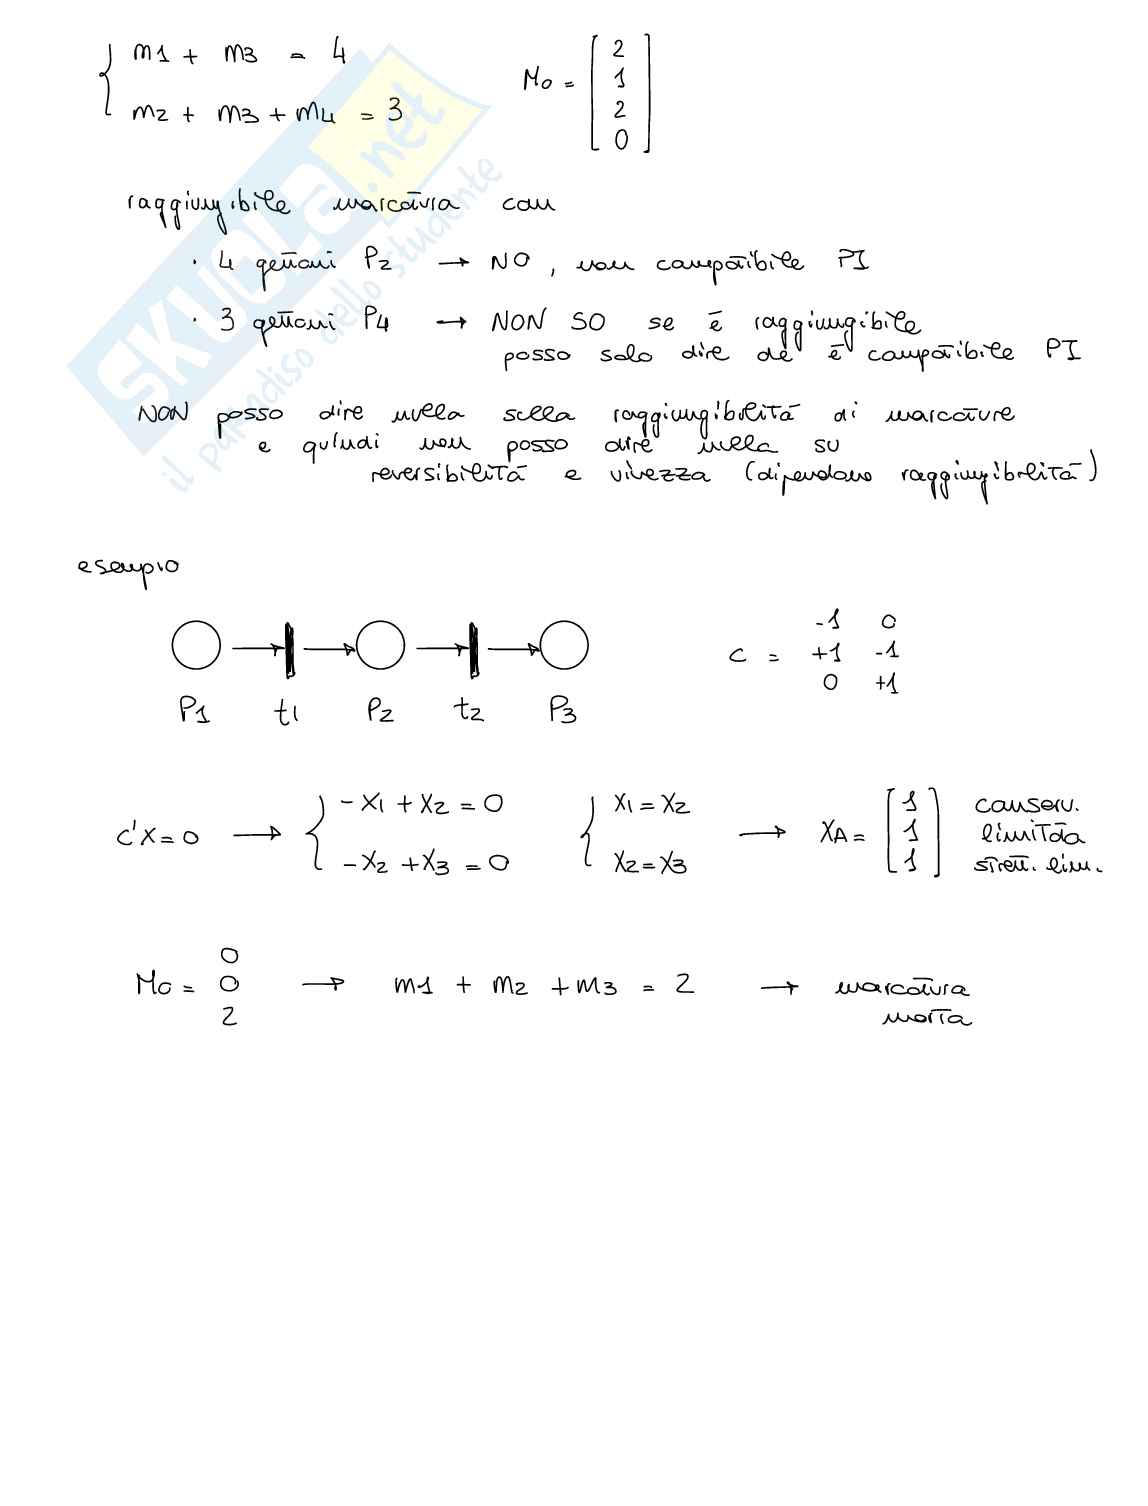 m1 + m3 = 4
m2 + m3 + m4 = 3
M0 = [ 2 1 2 0 ]
raggiungibile marcatura con
· 4 gettoni P2 → NO, non compatibile PI
· 3 gettoni P4 → NON SO se è raggiungibile
posso solo dire che è compatibile PI
NON posso dire nulla sulla raggiungibilità di marcature
e quindi non posso dire nulla su
reversibilità e vivezza (dipendono raggiungibilità)
esempio
P1 t1 P2 t2 P3
-1 0
C = +1 -1
0 +1
C'X = 0 → { -X1 + X2 = 0 { X1 = X2 → XA = [ 1 1 1 ] conserv.
-X2 + X3 = 0 X2 = X3 limitata
strett. lim.
M0 = 0 0 2 → m1 + m2 + m3 = 2 → marcatura
morta
SKUOLA.net
il paradiso dello studente